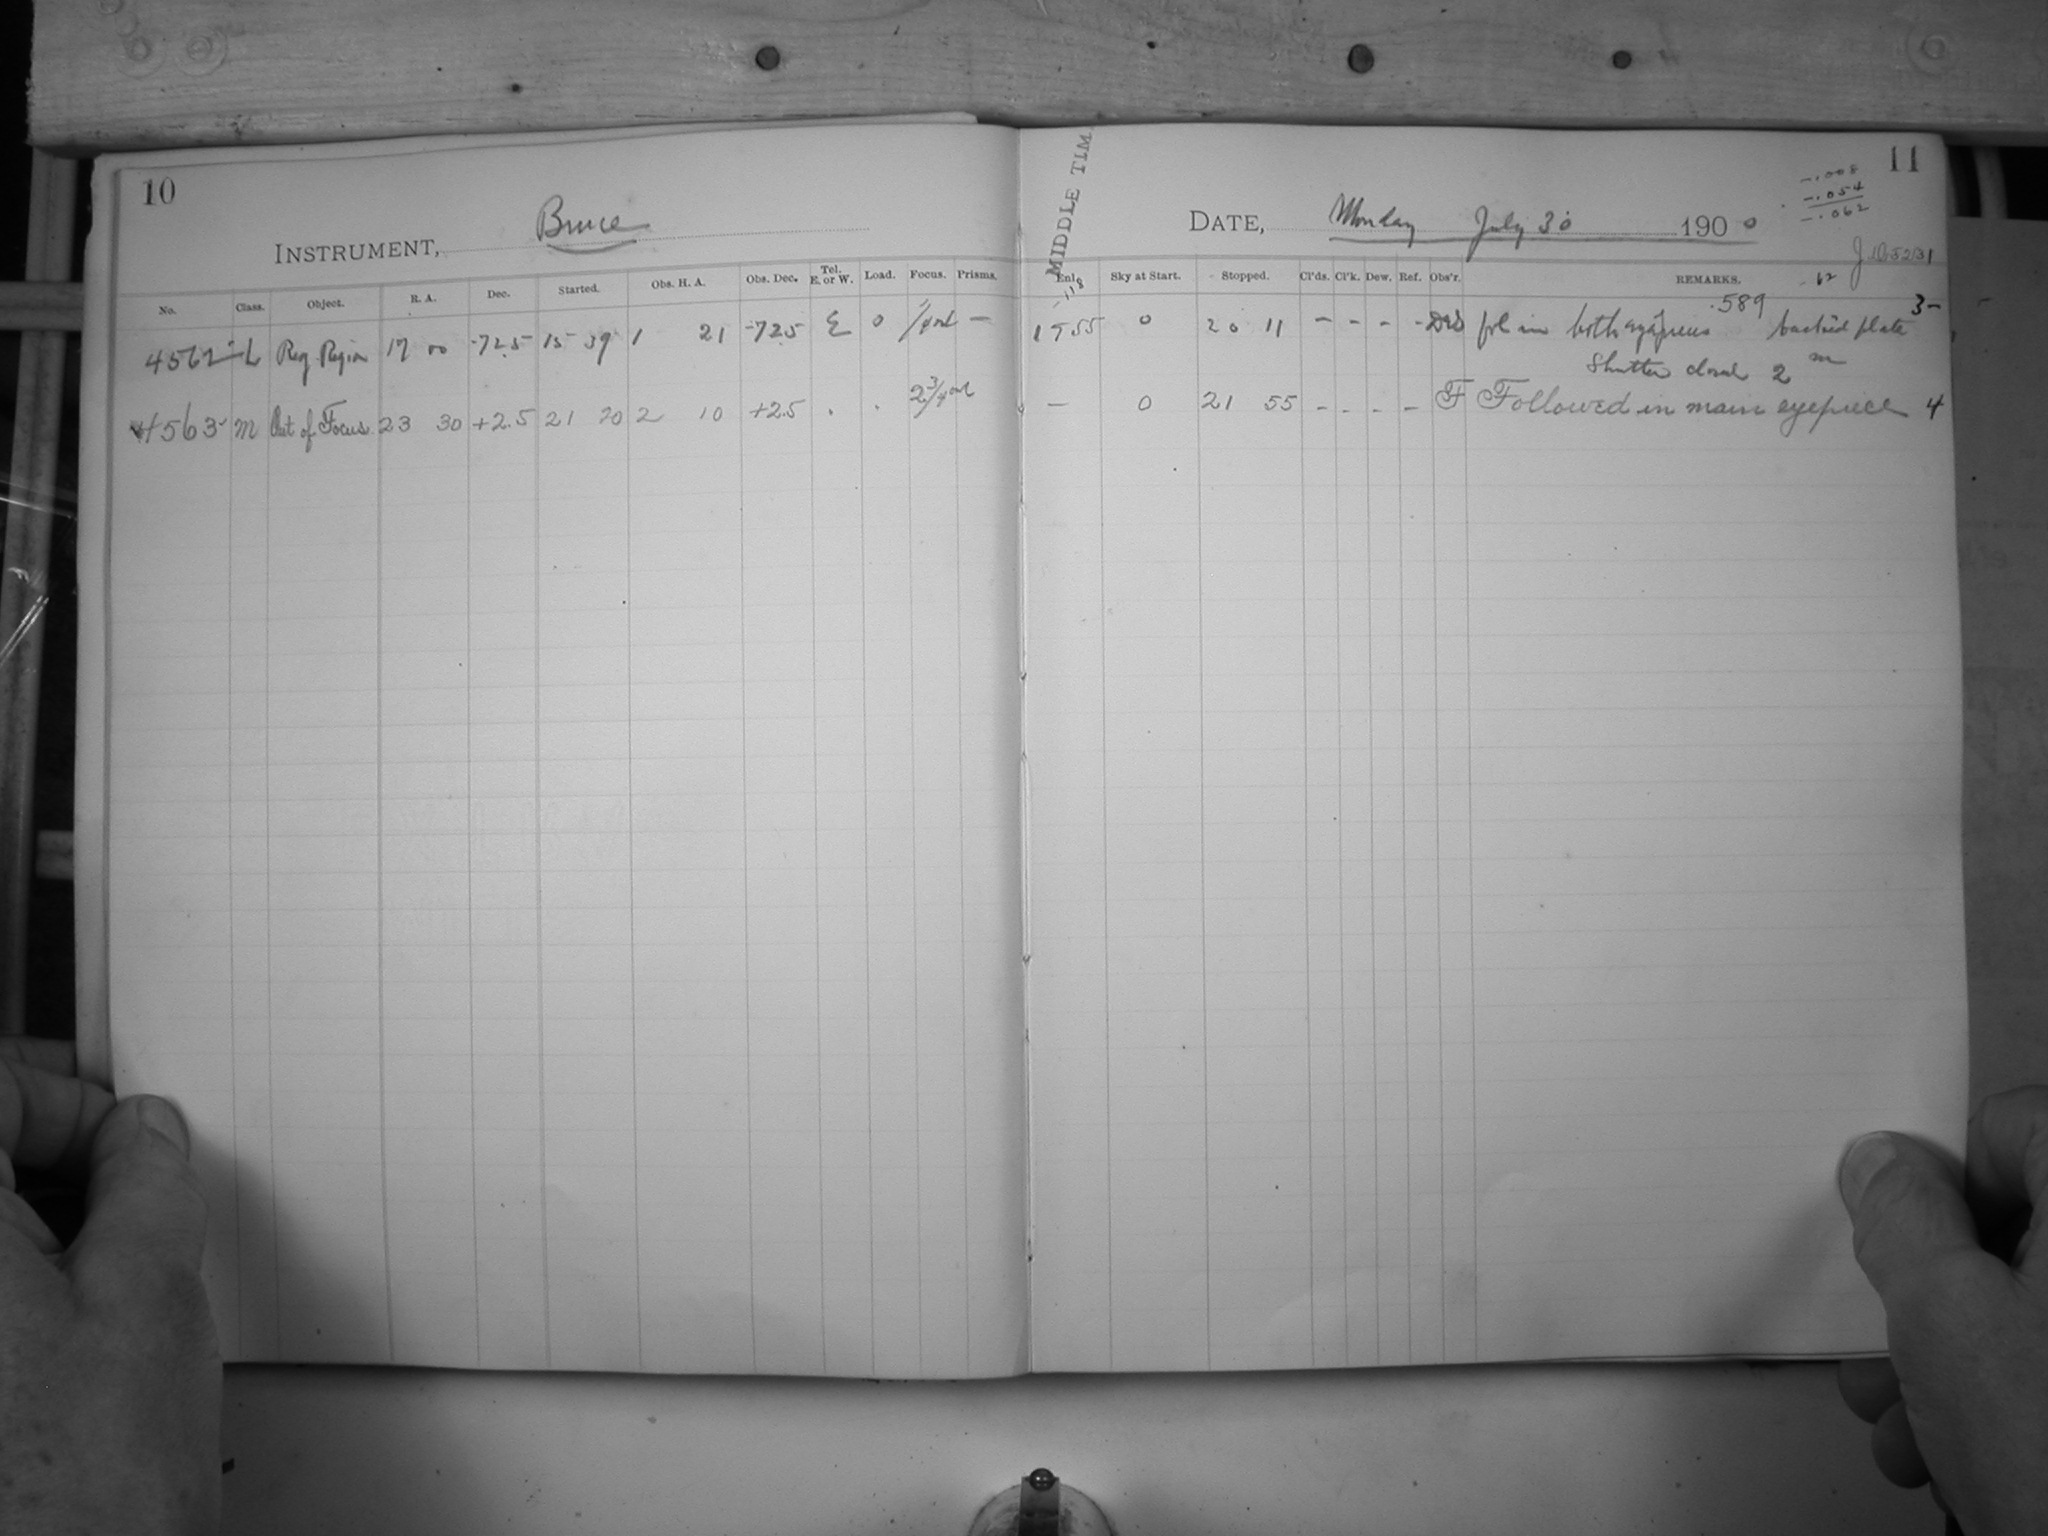 10
Bruce
INSTRUMENT,
No. Class. Object. R. A. Dec. Started. Obs. H. A. Obs. Dec. Tel. E. or W. Load. Focus. Prisms.
4562 L Reg Region 17 00 -72.5 15 39 1 21 -72.5 E 0 —
4563 M Out of Focus 23 30 +2.5 21 20 2 10 +2.5 . . 2 3/4
11
MIDDLE TIM
-.008
-.054
-.062
DATE, Monday July 30 1900
Enl. Sky at Start. Stopped. Cl'ds. Cl'k. Dew. Ref. Obs'r. REMARKS.
-118 .589 3-
1755 0 20 11 - - - - fol in both eyepieces backed plate
Shutter closed 2 m
— 0 21 55 - - - - F Followed in main eyepiece 4